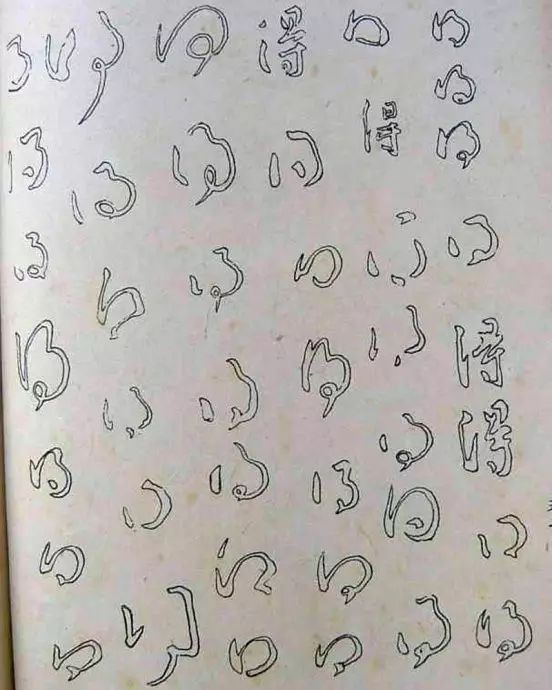 得得得得得得得得
得得得得得得得
得得得得得得得
得得得得得得得
得得得得得得
得得得得得得